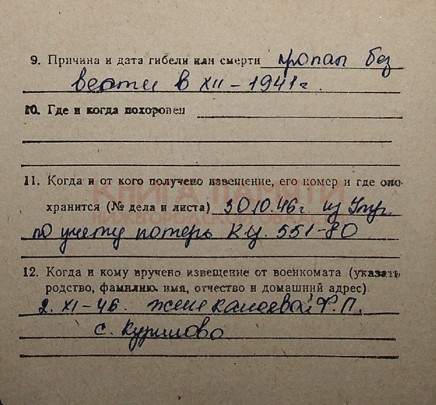 9. Причина и дата гибели или смерти пропал без
вести в XII – 1941 г.
10. Где и когда похоронен
11. Когда и от кого получено извещение, его номер и где оно
хранится (№ дела и листа) 30.10.46 г из Упр.
по учету потерь К.У. 551-80
12. Когда и кому вручено извещение от военкомата (указать
родство, фамилию, имя, отчество и домашний адрес)
2. XI-46. жене Ф. П.
с. Курилово